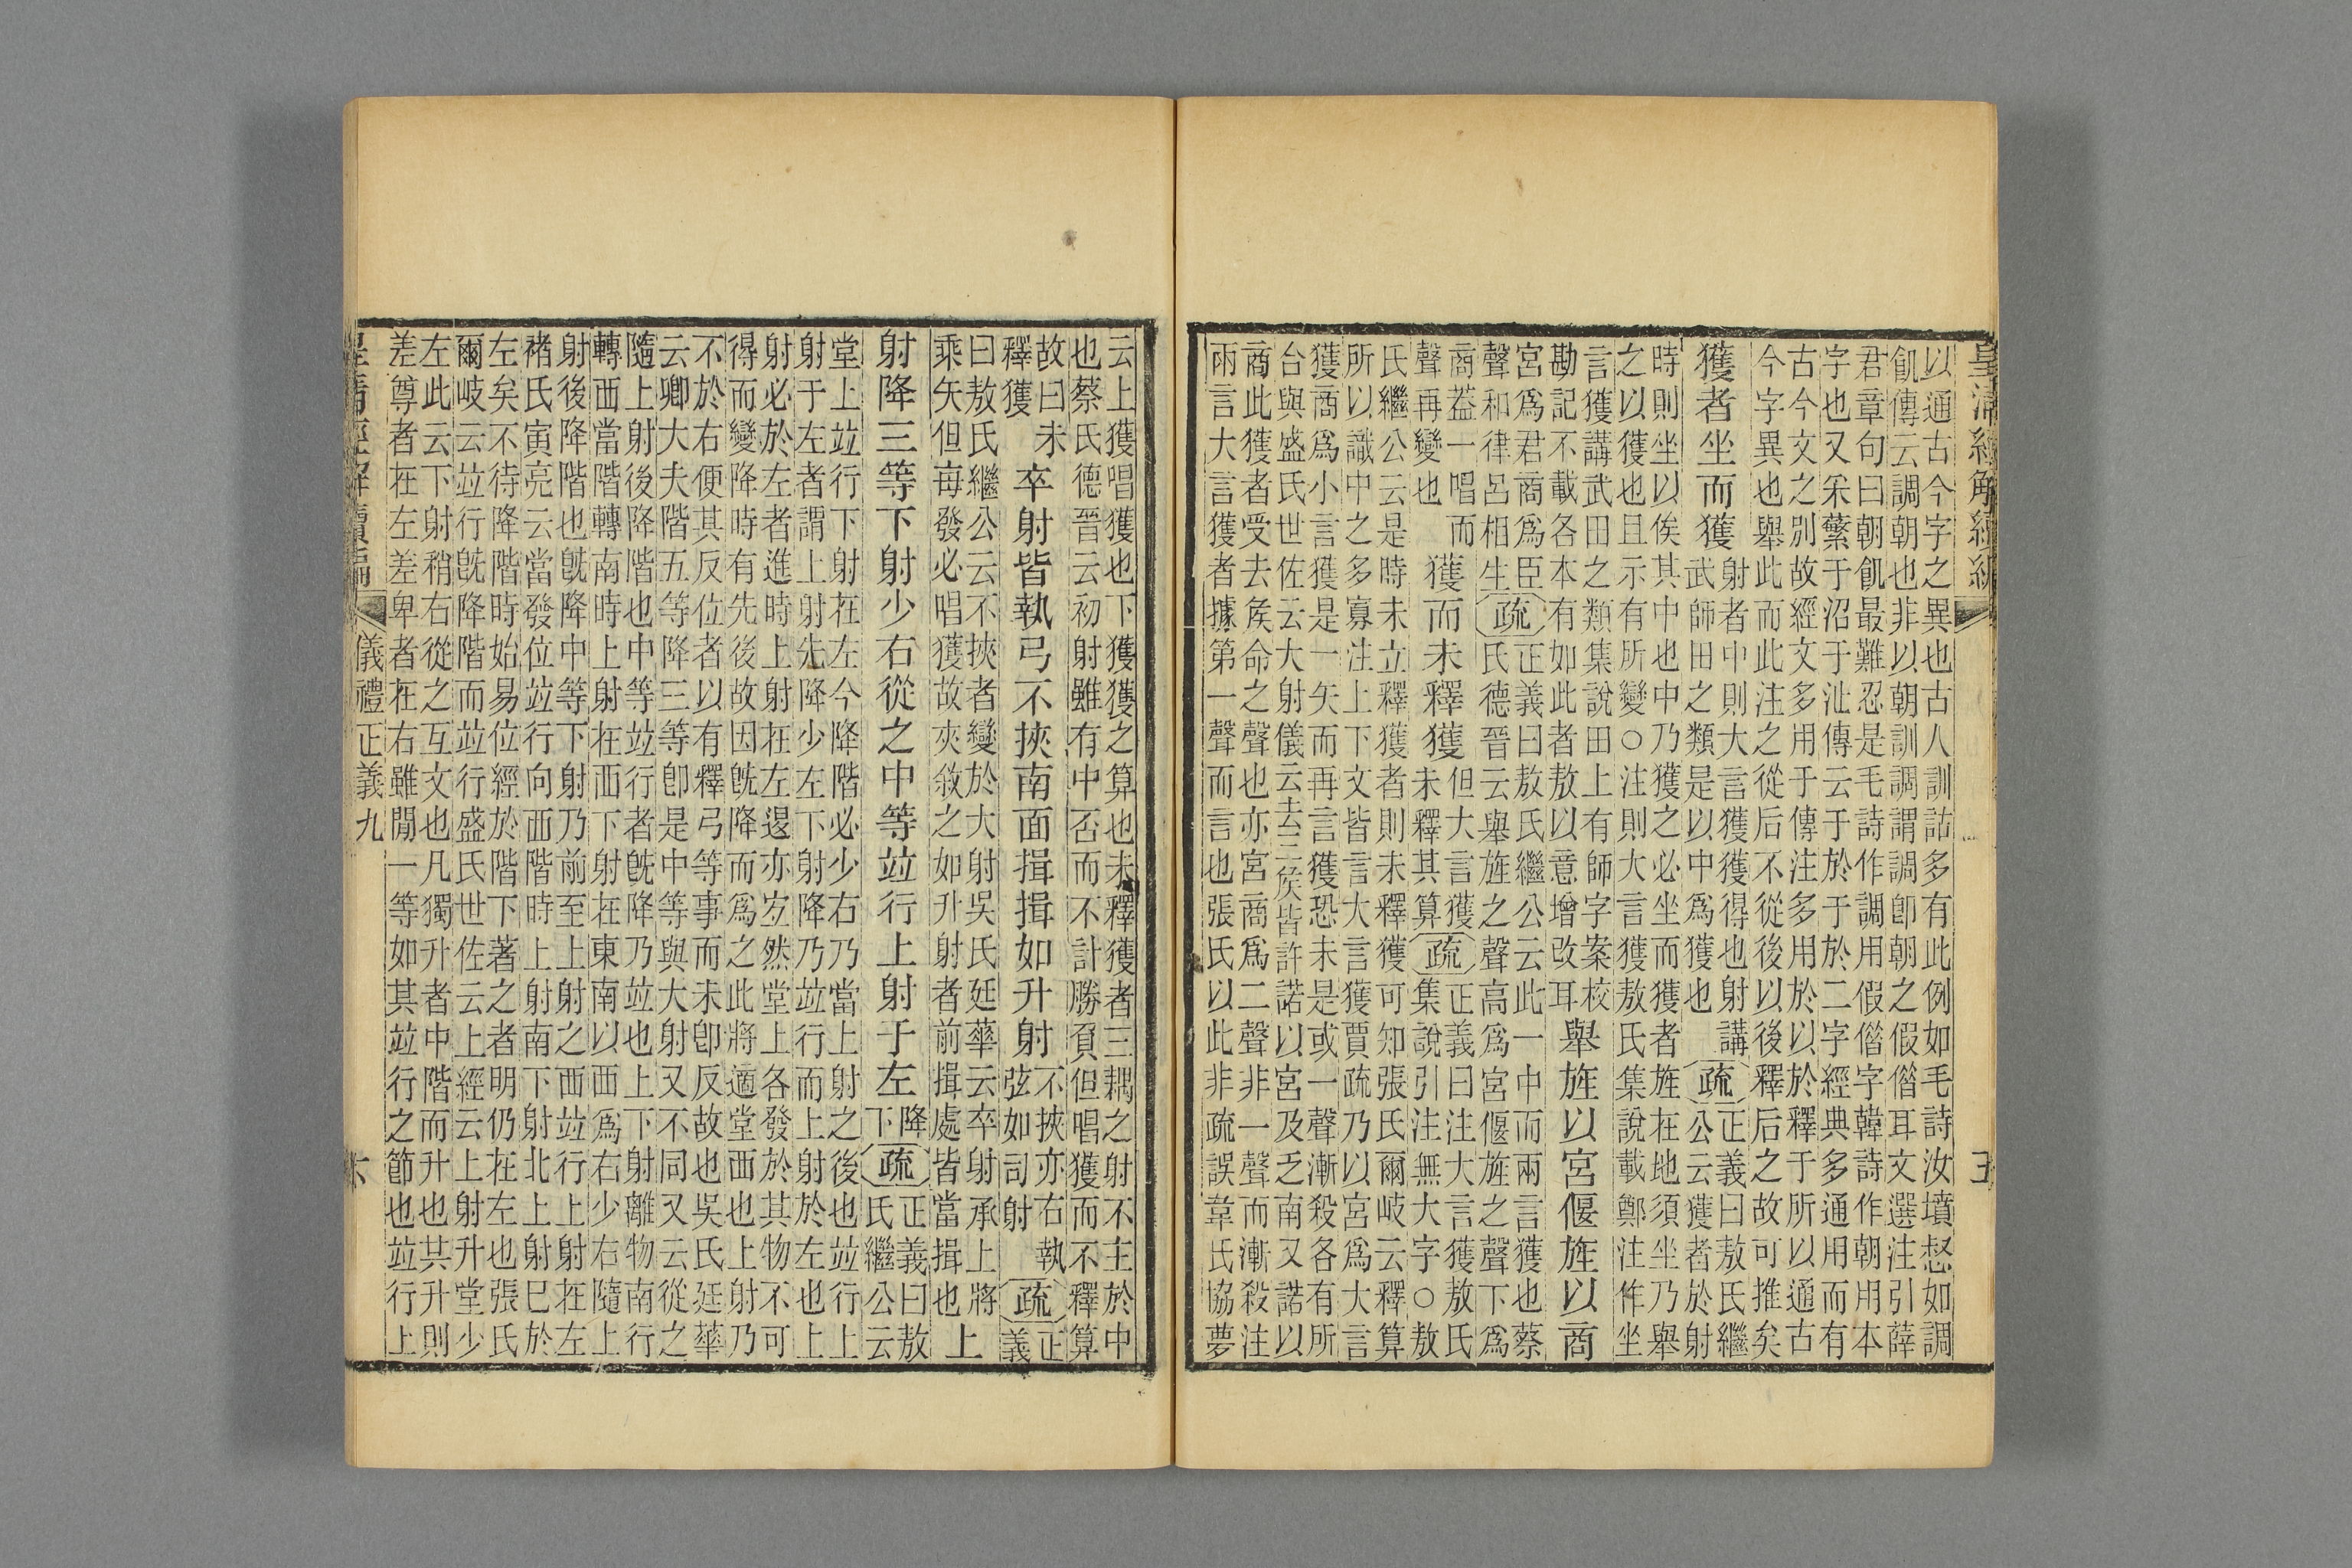 皇清經解續編
五
以通古今字之異也古人訓詁多有此例如毛詩汝墳惄如調
飢傳云調朝也非以朝訓調謂調卽朝之假僭耳文選注引薛
君章句曰朝飢最難忍是毛詩作調用假僭字韓詩作朝用本
字也又采蘩于沼于沚傳云于於于於二字經典多通用而有
古今文之別故經文多用于傳注多用於以於釋于所以通古
今字異也舉此而此注之從后不從後以後釋后之故可推矣
獲者坐而獲
射者中則大言獲獲得也射講
武師田之類是以中爲獲也
疏
正義曰敖氏繼
公云獲者於射
時則坐以俟其中也中乃獲之必坐而獲者旌在地須坐乃舉
之以獲也且示有所變○注則大言獲敖氏集說載鄭注作坐
言獲講武田之類集說田上有師字案校
勘記不載各本有如此者敖以意增改耳
舉旌以宮偃旌以商
宮爲君商爲臣
聲和律呂相生
疏
正義曰敖氏繼公云此一中而兩言獲也蔡
氏德晉云舉旌之聲高爲宮偃旌之聲下爲
商葢一唱而
聲再變也
獲而未釋獲
但大言獲
未釋其算
疏
正義曰注大言獲敖氏
集說引注無大字○敖
氏繼公云是時未立釋獲者則未釋獲可知張氏爾岐云釋算
所以識中之多寡注上下文皆言大言獲賈疏乃以宮爲大言
獲商爲小言獲是一矢而再言獲恐未是或一聲漸殺各有所
台與盛氏世佐云大射儀云去三侯皆許諾以宮及乏南又諾以
商此獲者受去侯命之聲也亦宮商爲二聲非一聲而漸殺注
兩言大言獲者據第一聲而言也張氏以此非疏誤韋氏協夢
云上獲唱獲也下獲獲之算也未釋獲者三耦之射不主於中
也蔡氏德晉云初射雖有中否而不計勝負但唱獲而不釋算
故曰未
釋獲
卒射皆執弓不挾南面揖揖如升射
不挾亦右執
弦如司射
疏
正
義
曰敖氏繼公云不挾者變於大射吳氏廷華云卒射承上將
乘矢但每發必唱獲故夾敘之如升射者前揖處皆當揖也
上
射降三等下射少右從之中等竝行上射于左
降
下
疏
正義曰敖
氏繼公云
堂上竝行下射在左今降階必少右乃當上射之後也竝行上
射于左者謂上射先降少左下射降乃竝行而上射於左也上
射必於左者進時上射在左退亦宜然堂上各發於其物不可
得而變降時有先後故因旣降而爲之此將適堂西也上射乃
不於右便其反位者以有釋弓等事而未卽反故也吳氏廷華
云卿大夫階五等降三等卽是中等與大射又不同又云從之
隨上射後降階也中等竝行者旣降乃竝也上下射離物南行
轉西當階轉南時上射在西下射在東南以西爲右少右隨上
射後降階也旣降中等下射乃前至上射之西竝行上射在左
褚氏寅亮云當發位竝行向西階時上射南下射北上射巳於
左矣不待降階時始易位經於階下著之者明仍在左也張氏
爾岐云竝行旣降階而竝行盛氏世佐云上經云上射升堂少
左此云下射稍右從之互文也凡獨升者中階而升也其升則
差尊者在左差卑者在右雖閒一等如其竝行之節也竝行上
皇清經解續編
儀禮正義九
六